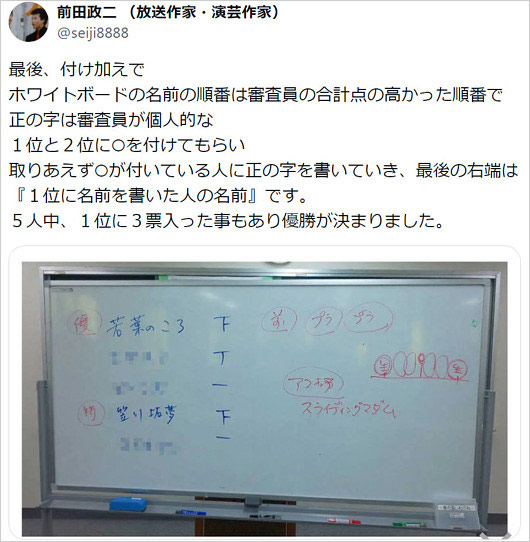 前田政二 （放送作家・演芸作家）
@seiji8888
最後、付け加えで
ホワイトボードの名前の順番は審査員の合計点の高かった順番で
正の字は審査員が個人的な
１位と２位に○を付けてもらい
取りあえず○が付いている人に正の字を書いていき、最後の右端は
『１位に名前を書いた人の名前』です。
５人中、１位に３票入った事もあり優勝が決まりました。
優 若葉のころ 下
プラ
丁
一
アコホ
スライディングマダム
笠川拓夢 下
一